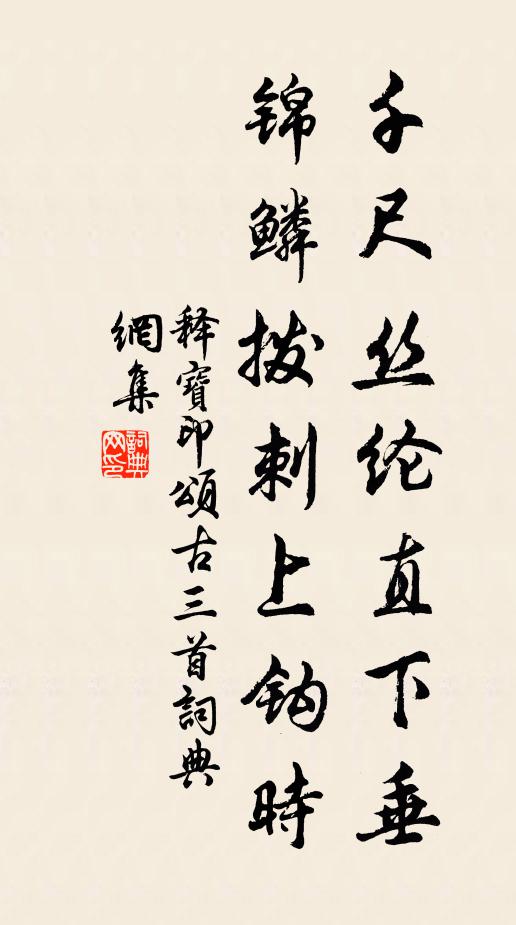 千尺丝纶直下垂
锦鳞拨刺上钩時
释寶印頌古三首詞典
網集
詞典网印